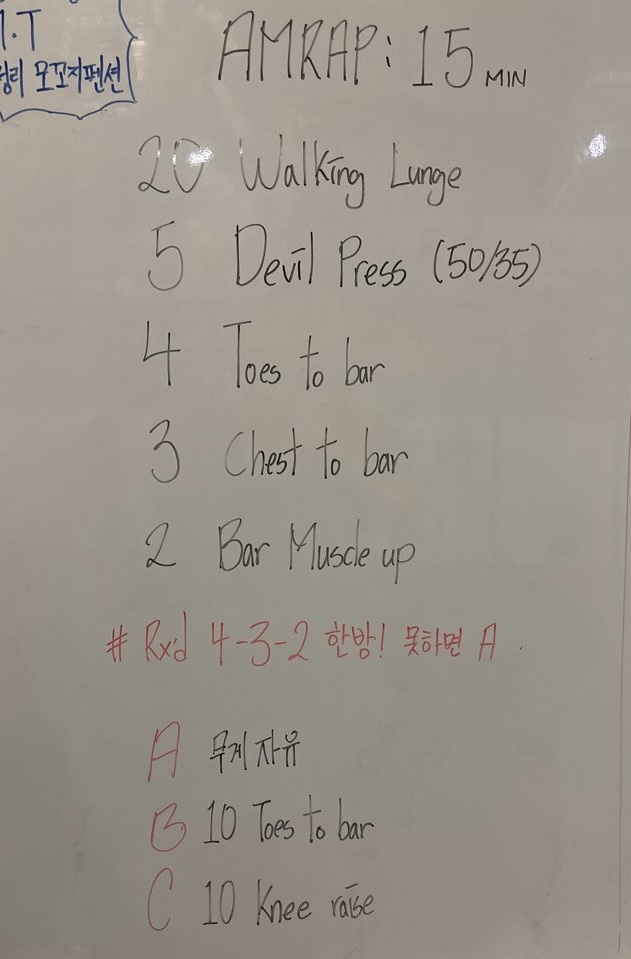 M.T
모꼬지펜션
AMRAP: 15 MIN
20 Walking Lunge
5 Devil Press (50/35)
4 Toes to bar
3 Chest to bar
2 Bar Muscle up
# Rxd 4-3-2 한방! 못하면 A.
A 무게 자유
B 10 Toes to bar
C 10 Knee raise